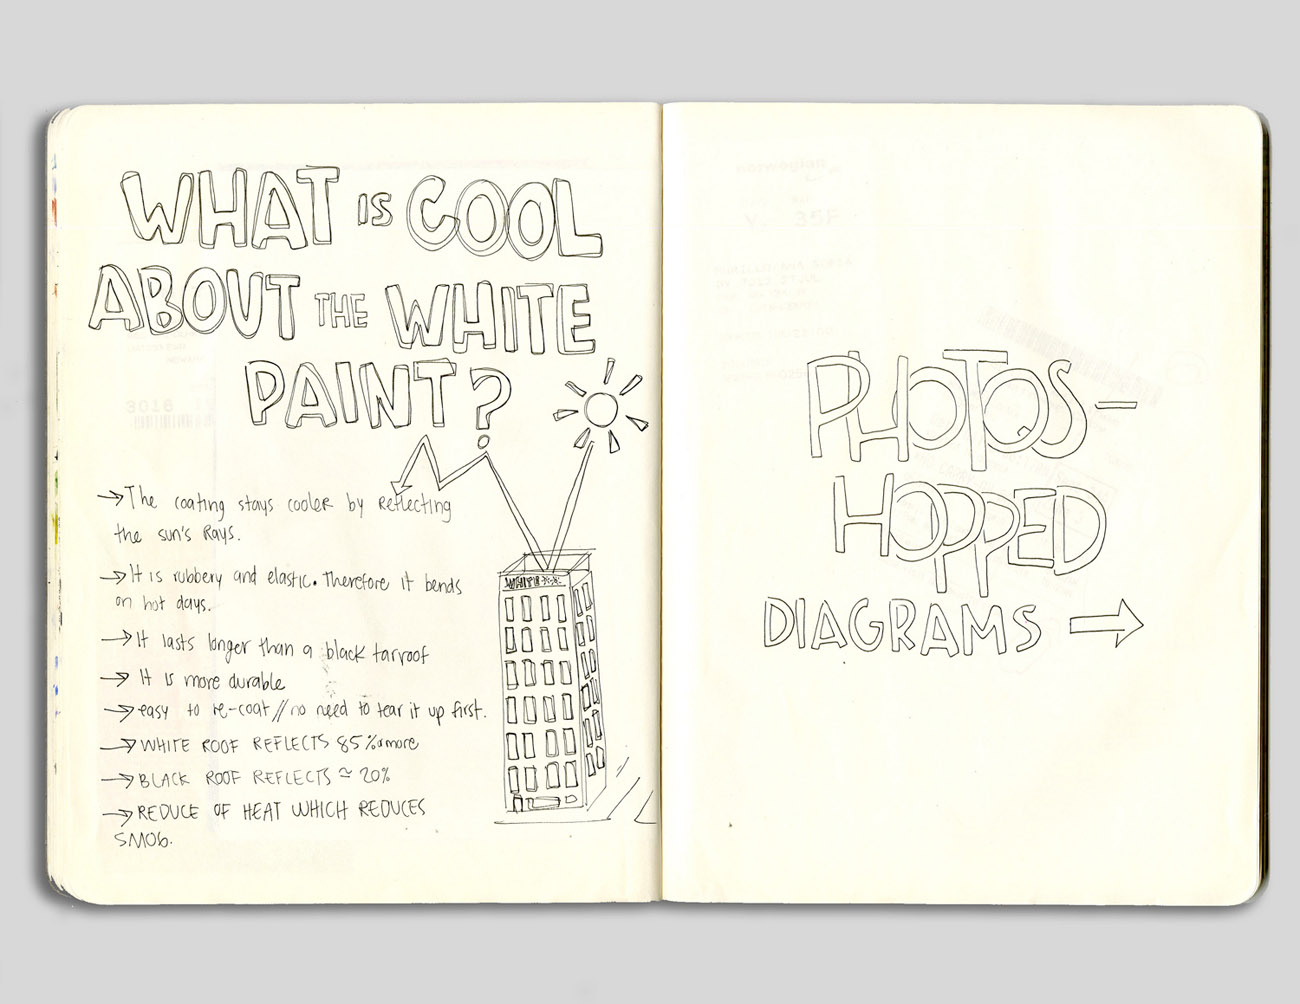 WHAT IS COOL
ABOUT THE WHITE
PAINT?
→The coating stays cooler by reflecting
the sun's Rays.
→It is rubbery and elastic. Therefore it bends
on hot days.
→It lasts longer than a black tarroof
→ It is more durable
→easy to re-coat // no need to tear it up first.
→WHITE ROOF REFLECTS 85% or more
→BLACK ROOF REFLECTS ≃ 20%
→REDUCE OF HEAT WHICH REDUCES
SMOG.
WHITE
PHOTOS-
HOPPED
DIAGRAMS →
norwegian
35F
3016